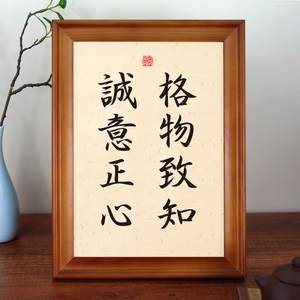 格物致知
誠意正心